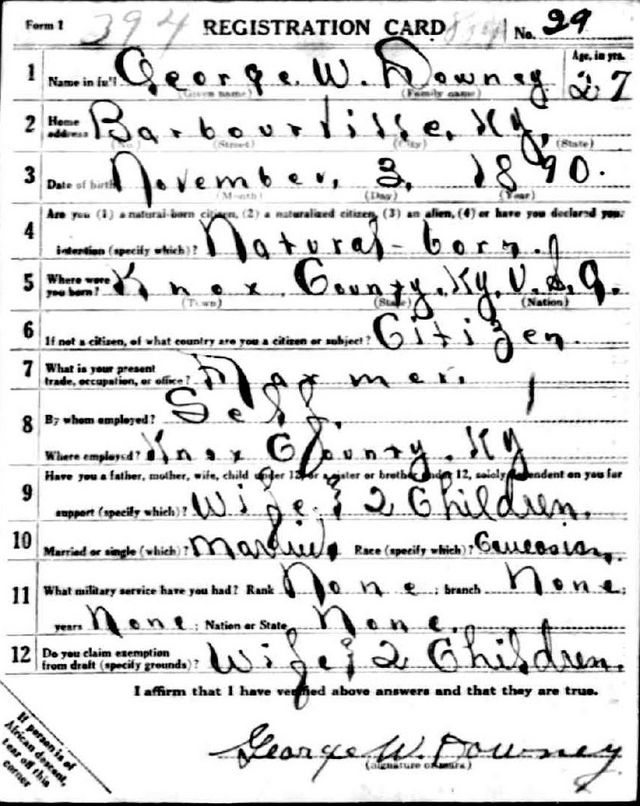 Form 1 394 REGISTRATION CARD No. 29
1 Name in full George W. Downey Age, in yrs. 27
(Given name) (Family name)
2 Home address Barbourville, Ky,
(No.) (Street) (City) (State)
3 Date of birth November, 3, 1890.
(Month) (Day) (Year)
Are you (1) a natural-born citizen, (2) a naturalized citizen, (3) an alien, (4) or have you declared your
4 intention (specify which)? Natural-born.
5 Where were you born? Knox County, Ky, U.S.A.
(Town) (State) (Nation)
6 If not a citizen, of what country are you a citizen or subject? Citizen.
7 What is your present trade, occupation, or office? Farmer.
8 By whom employed? Self.
Where employed? Knox County, Ky
Have you a father, mother, wife, child under 12, or a sister or brother under 12, solely dependent on you for
9 support (specify which)? Wife & 2 Children.
10 Married or single (which)? Married, Race (specify which)? Caucasian,
11 What military service have you had? Rank None; branch None;
years None; Nation or State None.
12 Do you claim exemption from draft (specify grounds)? Wife & 2 Children.
I affirm that I have verified above answers and that they are true.
George W. Downey
(Signature or mark)
If person is of
African descent,
tear off this
corner